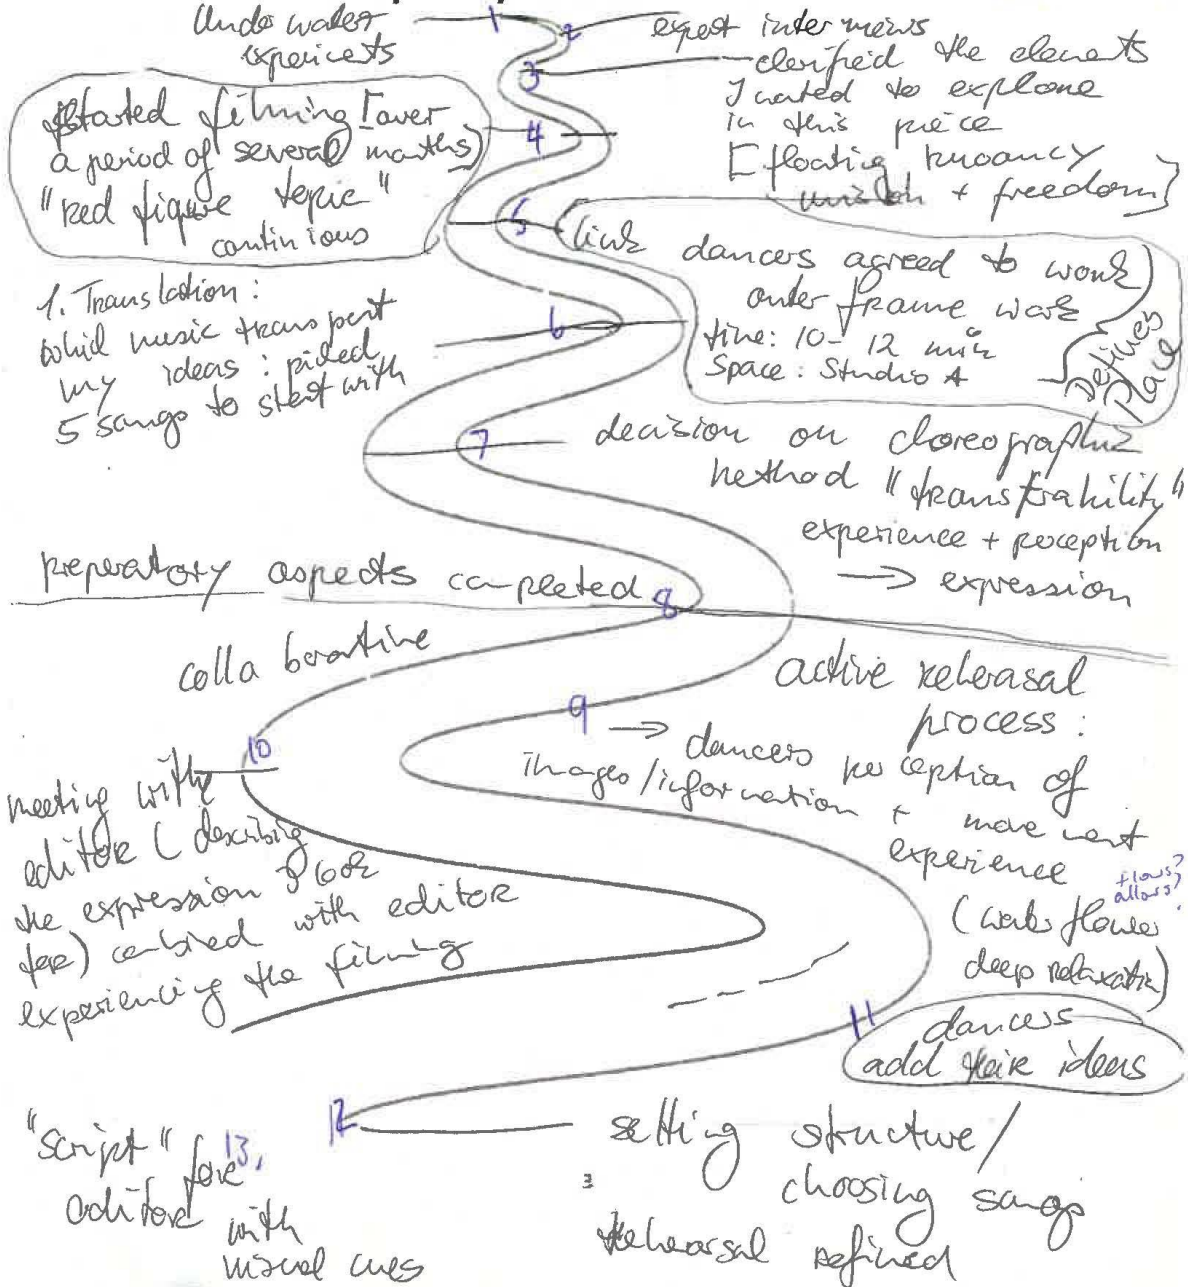 1
Under water
expericets
2
expert interviews
3
clerified the elements
I wated to explore
in this piece
[floating buoancy
+ freedom]
4
started filming [over
a period of several months)
"red figure topic"
continious
5
link dancers agreed to work
outer frame work
time: 10-12 min
Space: Studio A
Defines
Place
6
1. Translation:
which music transport
my ideas: picked
5 songs to start with
7
decision on choreographic
method "transfrability"
experience + perception
→ expression
preperatory aspects completed
8
colla borative
active reherasal
process:
9
→ dancers perception of
images/information + movement
experience
(water flower
flows?
allows?
deep relaxation)
10
meeting with
editor (describing
the expression I look
for) combined with editor
experiencing the filming
11
dancers
add their ideas
12
setting structure/
choosing songs
rehearsal refined
3
13.
"script" for
editor with
visual cues